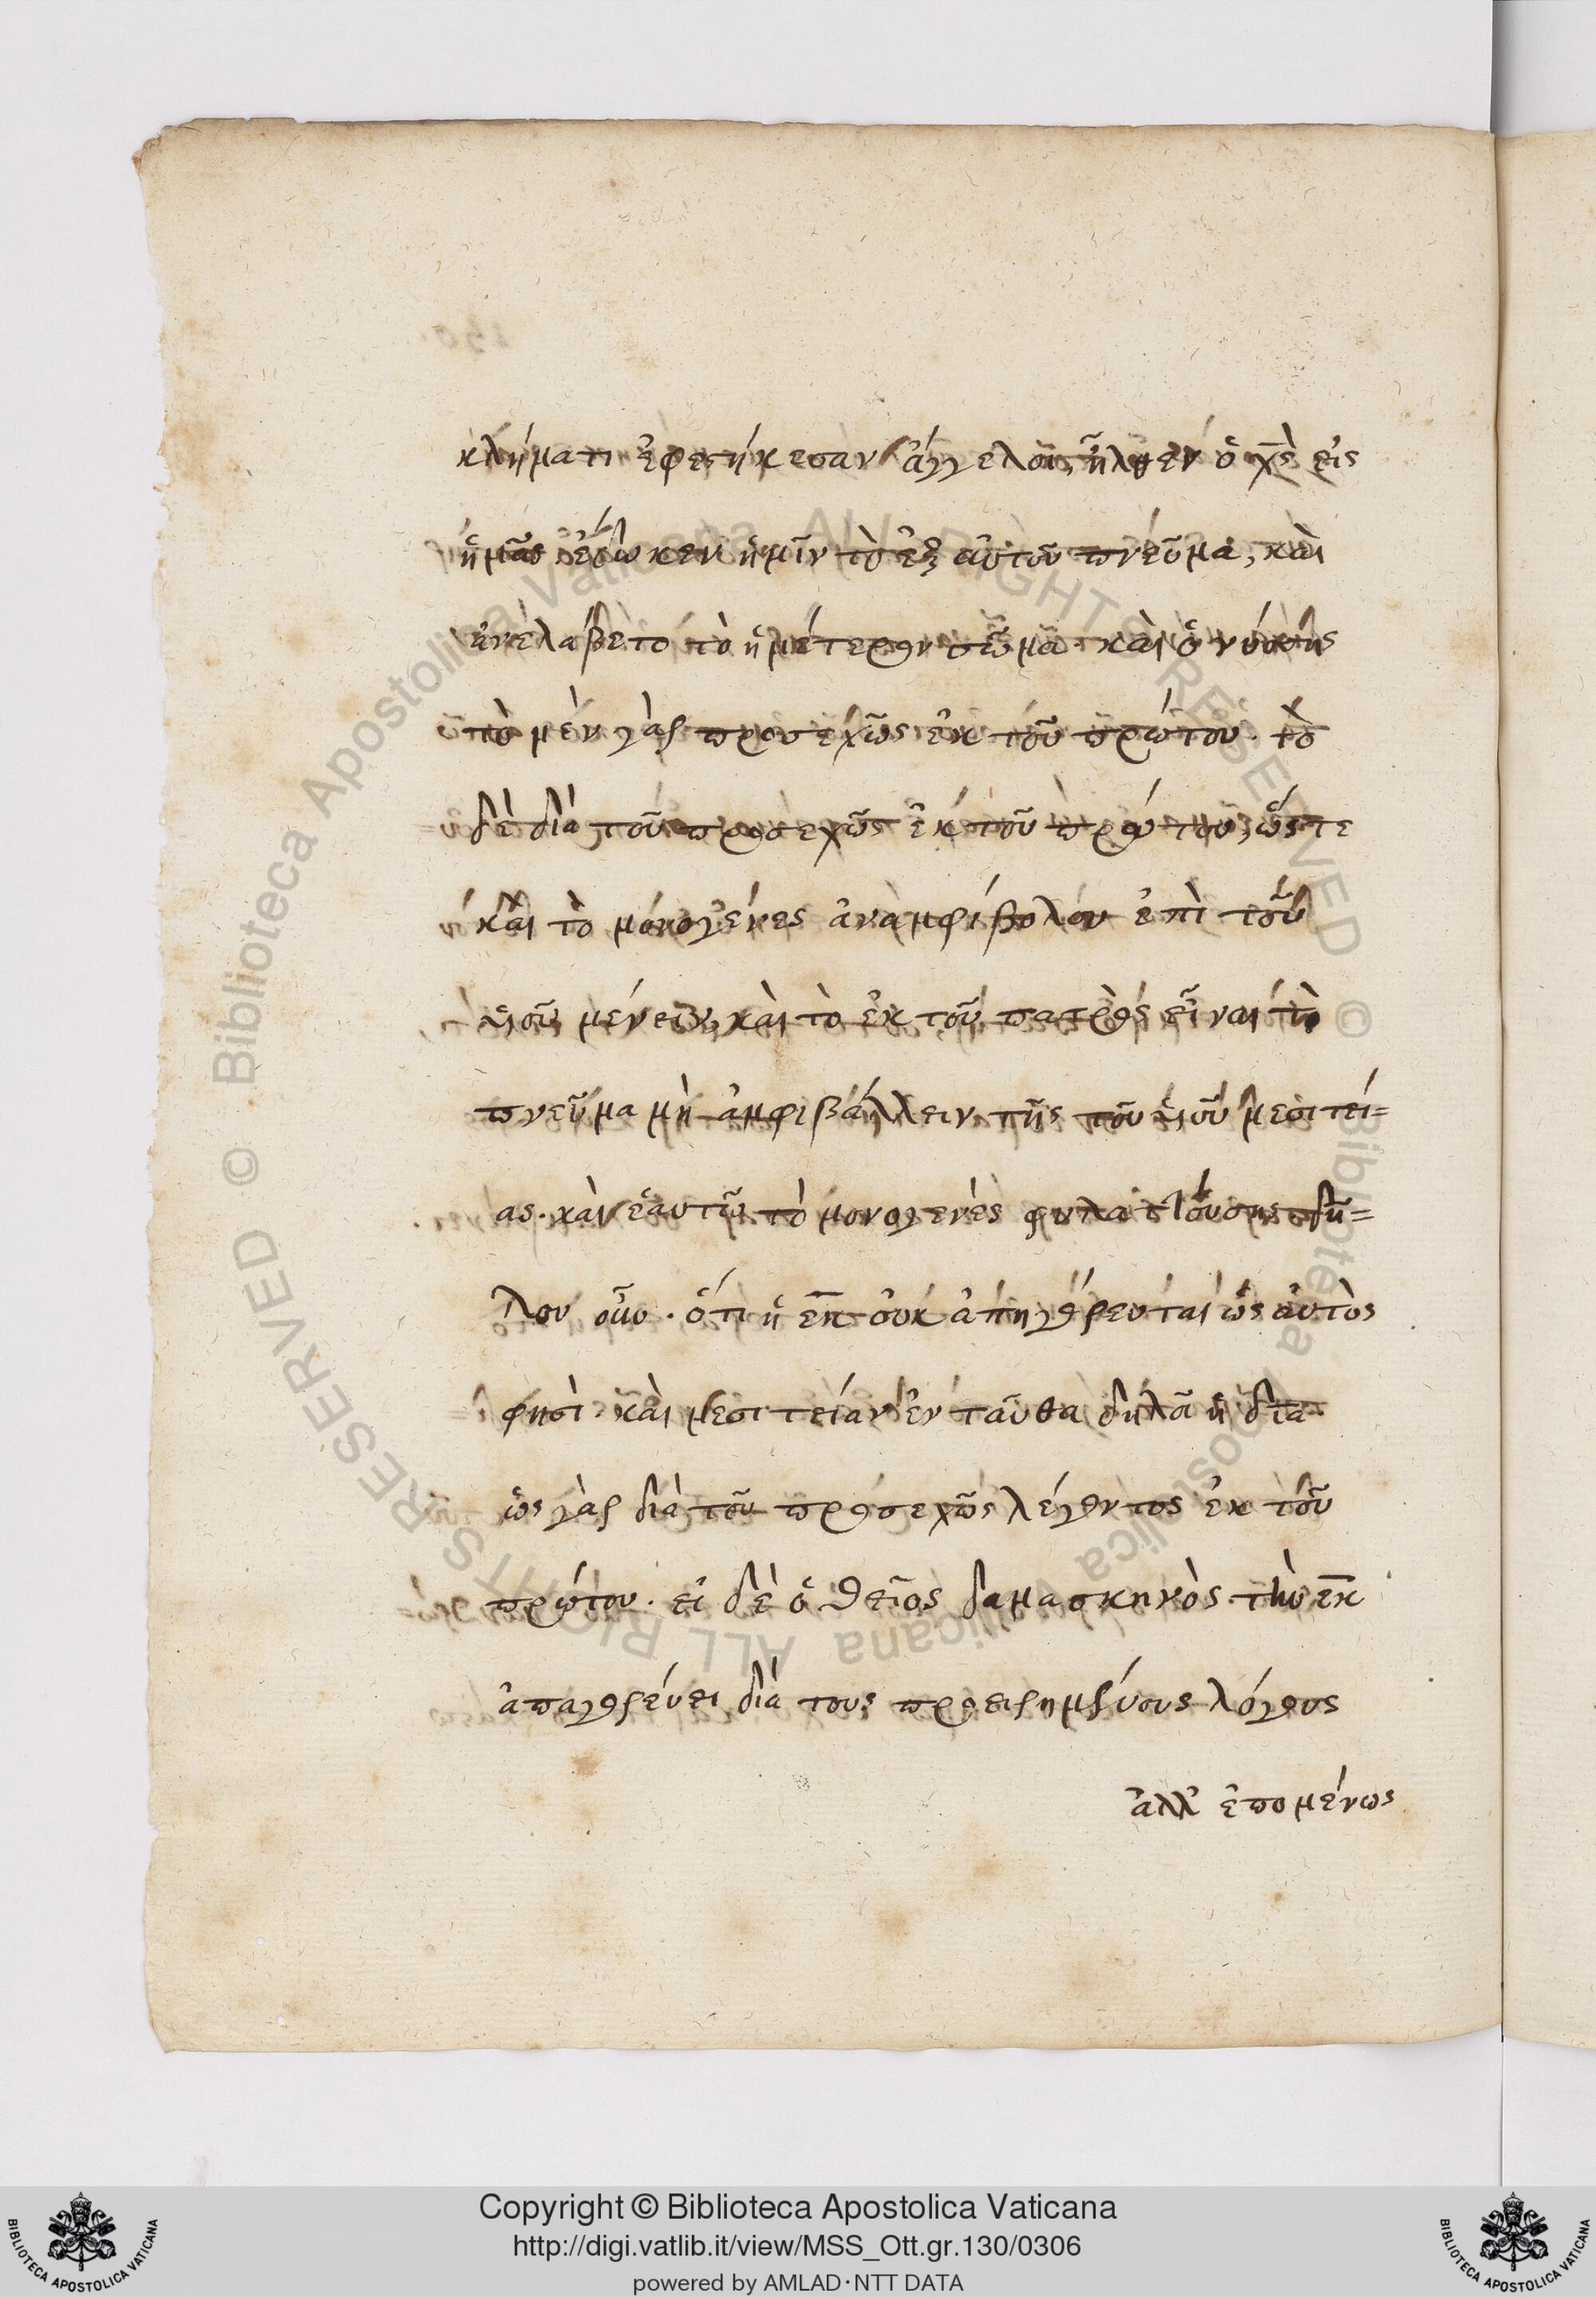 κλήματι ἐφεστήκεσαν ἄγγελοι, ἦλθεν ὁ χς εἰς
ἡμᾶς ἔδωκεν ἡμῖν τὸ ἐξ αὐτοῦ πνεῦμα, καὶ
ἀνελάβετο τὸ ἡμέτερον σῶμα. καὶ ὁ νύσης
τὸ μὲν γὰρ προσεχῶς ἐκ τοῦ πρώτου. τὸ
δὲ διὰ τοῦ προσεχῶς ἐκ τοῦ πρώτου, ὥστε
καὶ τὸ μονογενὲς ἀναμφίβολον ἐπὶ τοῦ
υἱοῦ μένειν, καὶ τὸ ἐκ τοῦ πατρὸς εἶναι τὸ
πνεῦμα μὴ ἀμφιβάλλειν, τῆς τοῦ υἱοῦ μεσιτεί=
ας. καὶ ἑαυτῶ τὸ μονογενὲς φυλαττούσης δῆ=
λον οὖν. ὅτι ἡ ἐκ οὐκ ἀπηγόρευται ὡς αὐτὸς
φησὶ. καὶ μεσιτείαν ἐνταῦθα δηλᾶ ἡ διὰ
ὡς γὰρ διὰ τοῦ προσεχῶς λέγοντος ἐκ τοῦ
πρώτου. εἰ δὲ ὁ θεῖος δαμασκηνὸς τὴν ἐκ
ἀπαγορεύει διὰ τους προειρημένους λόγους
ἀλλ' ἐπομένως
Copyright © Biblioteca Apostolica Vaticana
http://digi.vatlib.it/view/MSS_Ott.gr.130/0306
powered by AMLAD·NTT DATA